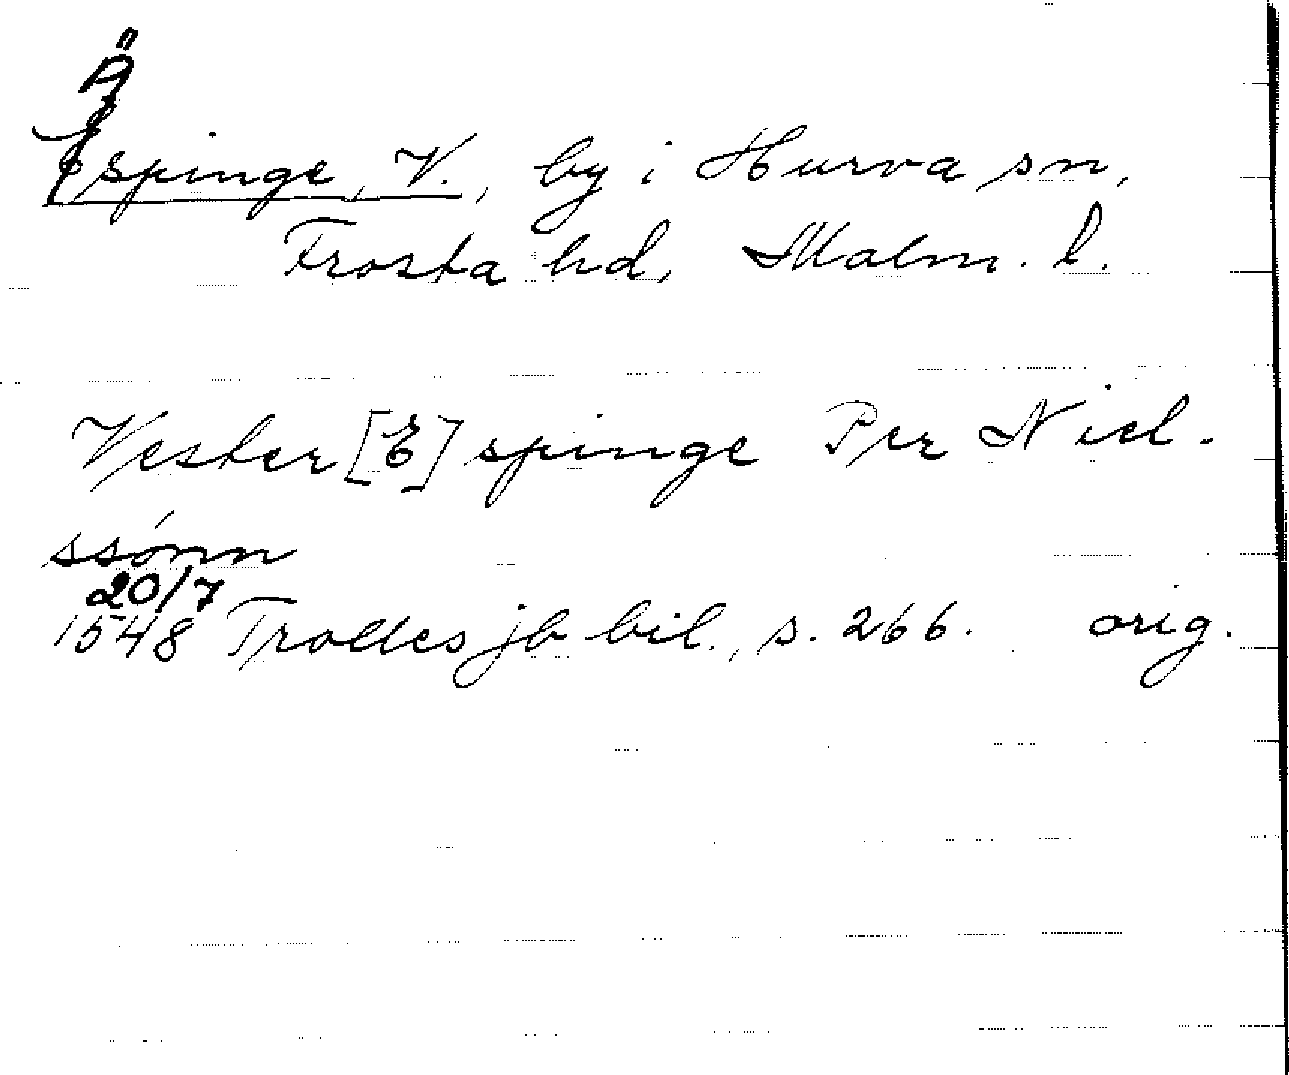 Ä
Espinge, V., by i Hurva sn,
Frosta hd, Malm. l.
Vester [E] spinge Per Niel-
ssónn
20/7
1548 Trolles jb bil., s. 266. orig.